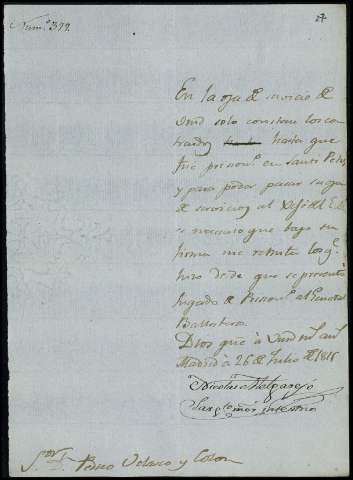 Num.º 399.
27
En la oja de servicio de
Vmd solo constan los con
trahidos hasta que
fue prision.º en
y para poder pasar su oja
de servicios al Xefe del E.
es necesario que bajo su
firma me remita los q.e
hizo desde que se presentó
fugado de Prision.º al General
Ballesteros.
Dios gue à Vmd m.s an.s
Madrid à 26 de Julio de 1815
Nicolas Melgarejo
Sarg.to mor interino
S.or D. Pedro Velasco y Colon